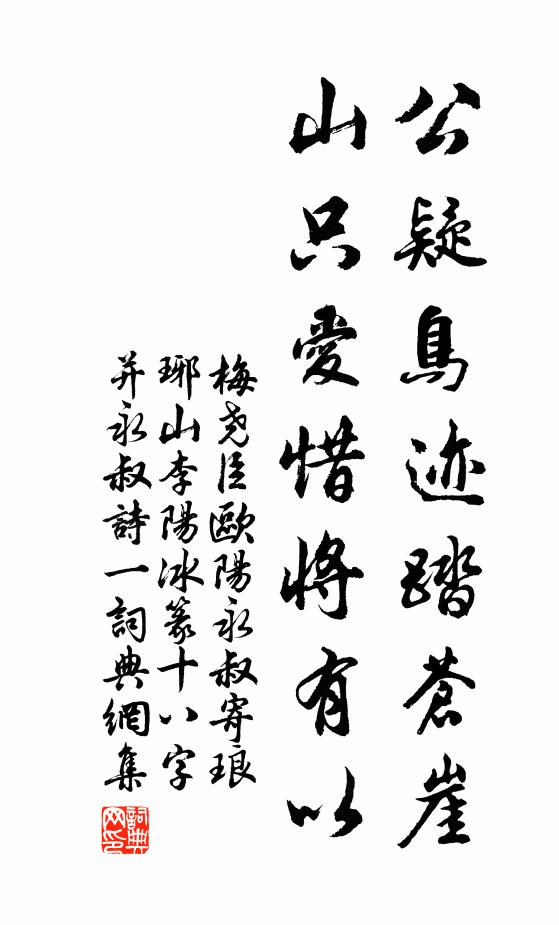 公疑鳥迹踏蒼崖
山只愛惜將有以
梅堯臣歐陽永叔寄琅
琊山李陽冰篆十八字
并永叔詩一詞典網集
詞典
网印